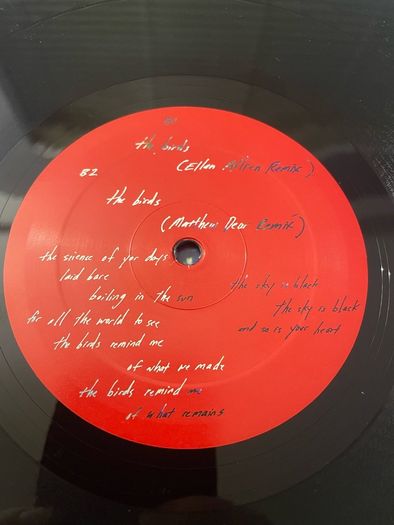 the birds
(Ellen Allien Remix)
B2
the birds
(Matthew Dear Remix)
the silence of yor days
laid bare
boiling in the sun
for all the world to see
the birds remind me
of what we made
the birds remind me
of what remains
the sky is black
the sky is black
and so is your heart